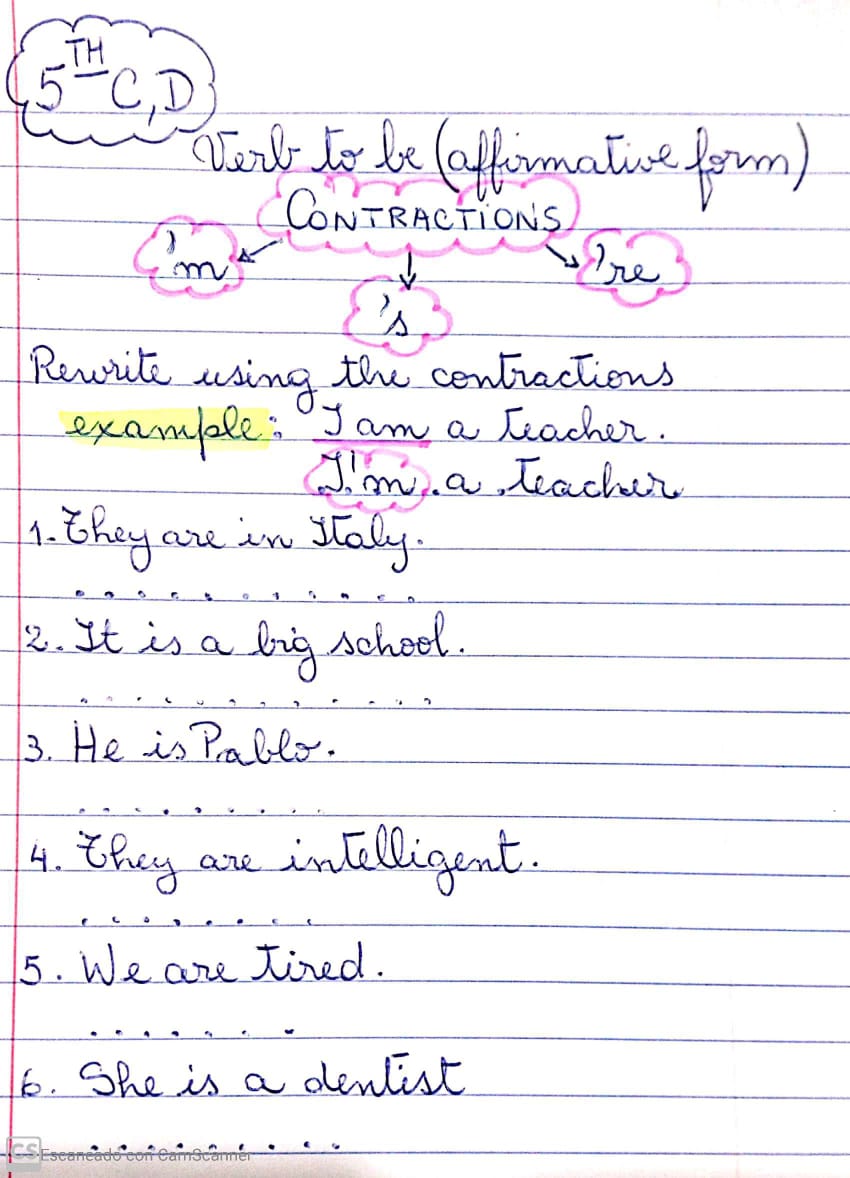 5TH C, D
Verb to be (affirmative form)
CONTRACTIONS
'm
're
's
Rewrite using the contractions
example: I am a teacher.
I'm a teacher
1. They are in Italy.
2. It is a big school.
3. He is Pablo.
4. They are intelligent.
5. We are tired.
6. She is a dentist
CS Escaneado con CamScanner